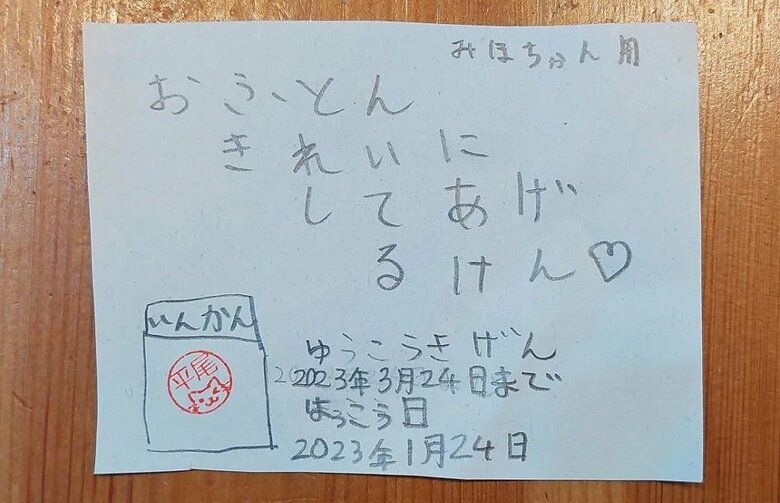 みほちゃん用
おふとん
きれいに
してあげ
るけん♡
いんかん
平尾
ゆうこうきげん
2023年3月24日まで
はっこう日
2023年1月24日